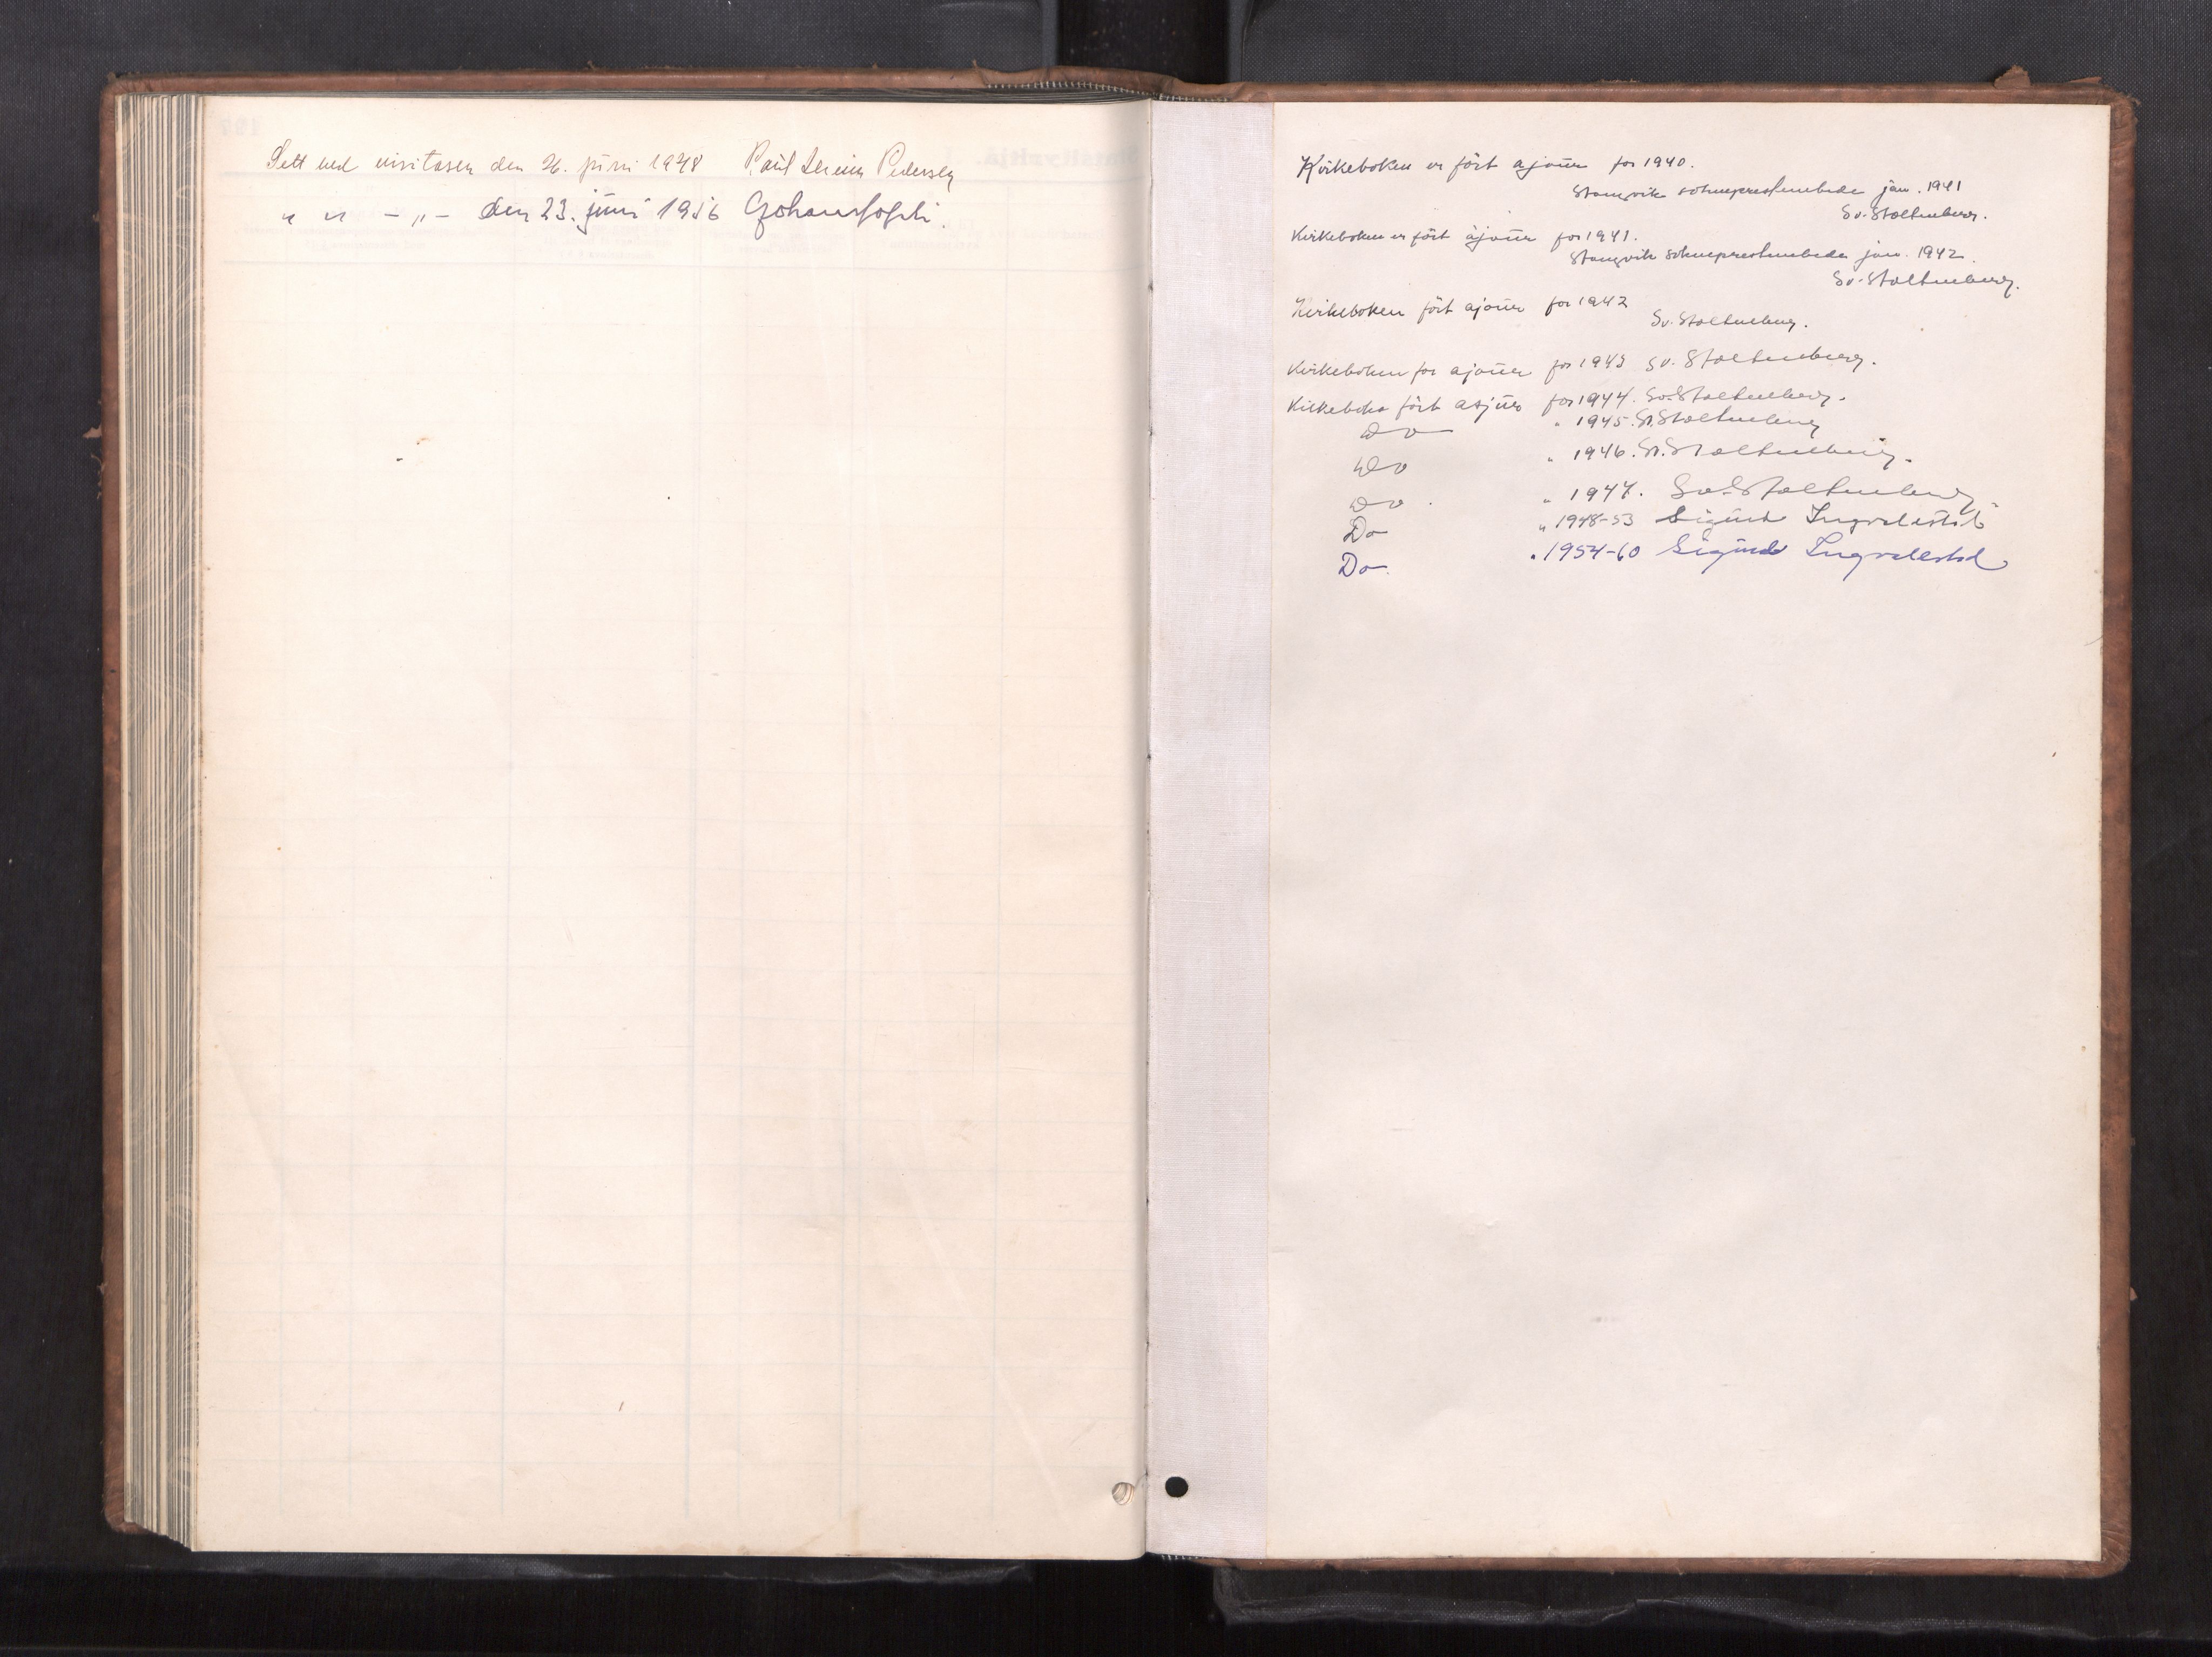 Sett ved visitasen den 26. juni 1948 Paul Pedersen
" " - " - den 23. juni 1956
Kirkeboken er ført ajour for 1940.
Stangvik sokneprestembede jan. 1941
Sv. Stoltenberg.
Kirkeboken er ført àjour for 1941.
Stangvik sokneprestembede jan. 1942.
Sv. Stoltenberg.
Kirkeboken ført ajour for 1942
Sv. Stoltenberg.
Kirkeboken for ajour for 1943 Sv. Stoltenberg.
Kirkeboka ført for 1944. Sv. Stoltenberg.
Do " 1945. Sv. Stoltenberg
Do " 1946. Sv. Stoltenberg.
Do. " 1947. Sv. Stoltenberg.
Do " 1948-53 Sigurd
Do. " 1954-60 Sigurd